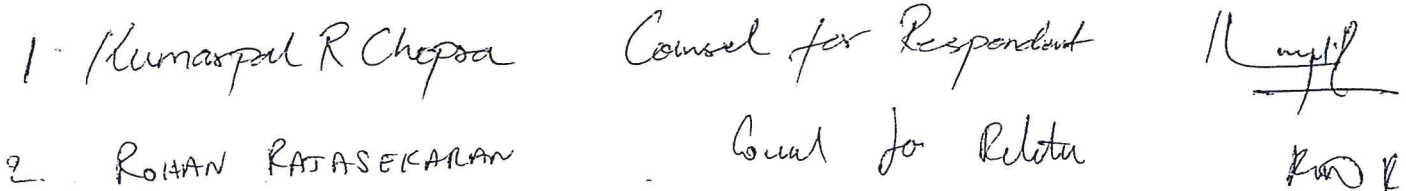 1. Kumarpal R Chopra Counsel for Respondent
2. ROHAN RAJASEKARAN Counsel for